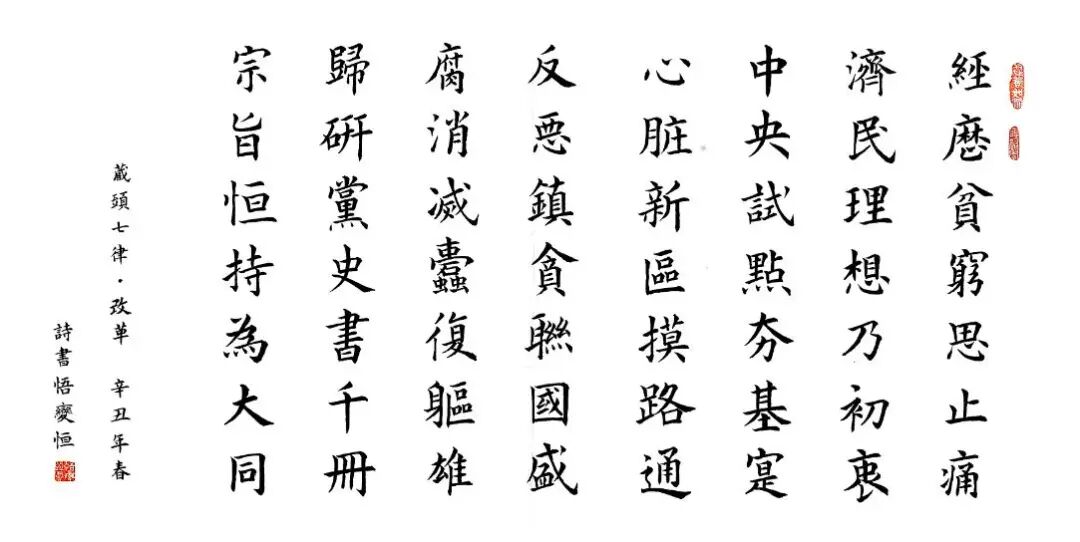 經歷貧窮思止痛
濟民理想乃初衷
中央試點夯基寔
心脏新區摸路通
反惡鎮貪聯國盛
腐消滅蠹復軀雄
歸研黨史書千冊
宗旨恒持為大同
藏頭七律·改革 辛丑年春
詩書悟變恒